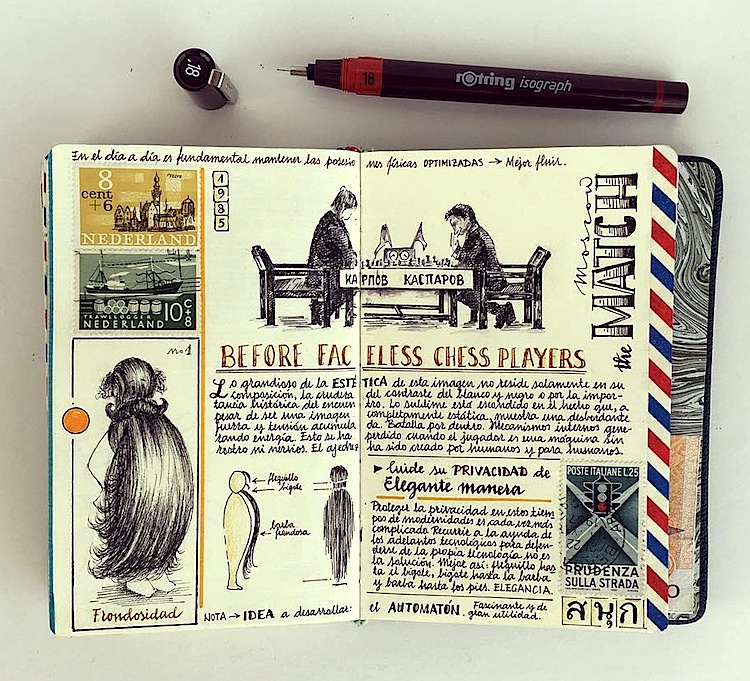 .18
18
rotring isograph
En el día a día es fundamental mantener las posiciones físicas OPTIMIZADAS → Mejor fluir.
8
cent
+6
NEDERLAND
TRAWLLOGGER
NEDERLAND
10 c+8
1985
КАРПОВ КАСПАРОВ
the MATCH Moscow
BEFORE FACELESS CHESS PLAYERS
Lo grandioso de la ESTÉTICA de esta imagen no reside solamente en su
composición, la crudeza del contraste del blanco y negro o por la impor-
tancia histórica del encuentro. Lo sublime está escondido en el hecho que, a
pesar de ser una imagen completamente estática, muestra una desbordante
fuerza y tensión acumulada. Batalla por dentro. Mecanismos internos gene-
rando energía. Esto se ha perdido cuando el jugador es una máquina sin
rostro ni nervios. El ajedrez ha sido creado por humanos y para humanos.
nº1
Frondosidad
flequillo
bigote
barba
frondosa
► Cuide su PRIVACIDAD de
Elegante manera
Proteger la privacidad en estos tiem
pos de modernidades es cada vez más
complicado. Recurrir a la ayuda de
los adelantos tecnológicos para defen-
derse de la propia tecnología no es
la solución. Mejor así: flequillo has
ta el bigote, bigote hasta la barba
y barba hasta los pies. ELEGANCIA.
POSTE ITALIANE L.25
PRUDENZA
SULLA STRADA
NOTA → IDEA a desarrollar: el AUTOMATÓN. Fascinante y de
gran utilidad.
สนุก